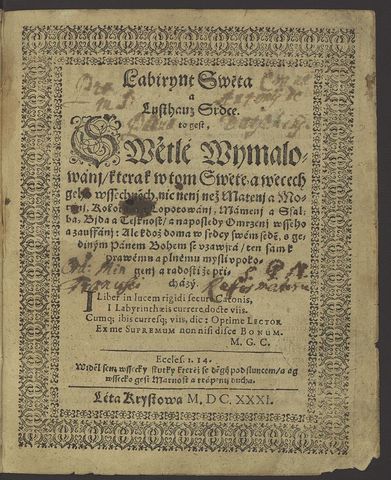 Labirynt Swěta
a
Lusthauz Srdce.
to gest,
SWětlé Wymalo-
wánj / kterak w tom Swětě. a wěcech
geho wssechněch, nic nenj než Matenj a Mo-
Lopotowánj, Mámenj a Ssal-
ba. Bjda a Tesknost / a naposledy Omrzenj wsseho
a zauffánj: Ale kdož doma w srdcy swém sedě. s ge-
diným Pánem Bohem se vzawjrá / ten sám k
prawému a plnému mysli vpoko-
genj a radosti že při-
cházý.
I Liber in lucem rigidi secure Catonis,
I Labyrinthæis currere docte viis.
Cumq; ibis curresq; viis, dic: Optime LECTOR
Ex me SUPREMUM non nisi disce BONUM.
M. G. C.
Eccles. 1. 14.
Widěl sem wssecky skutky kteréž se děgj pod sluncem / a ay
wssecko gest Marnost a trápenj ducha.
Léta Krystowa M. DC. XXXI.